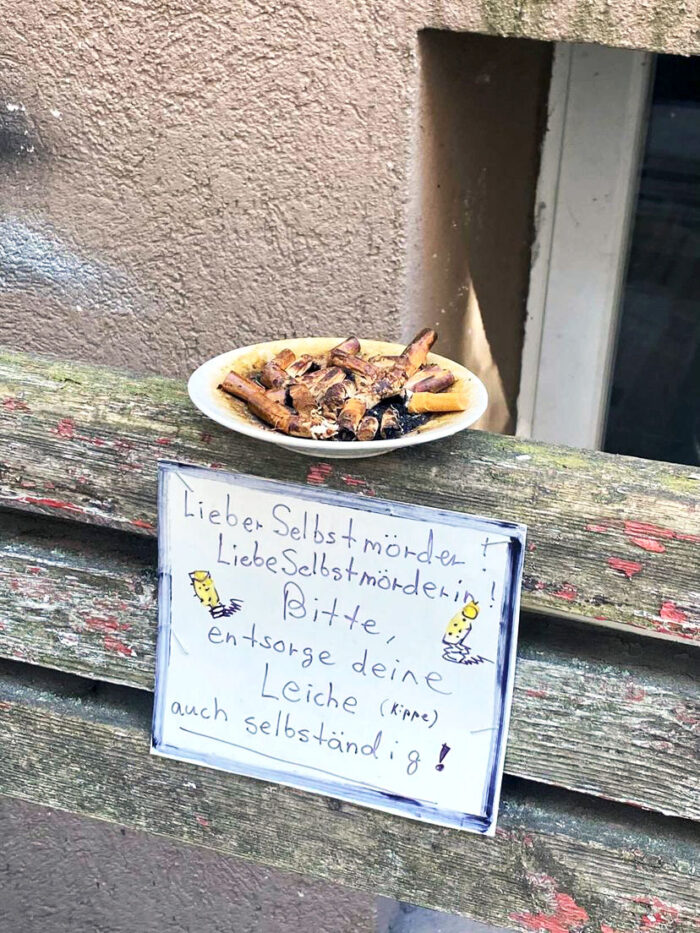 Lieber Selbstmörder!
Liebe Selbstmörderin!
Bitte,
entsorge deine
Leiche (Kippe)
auch selbständig!